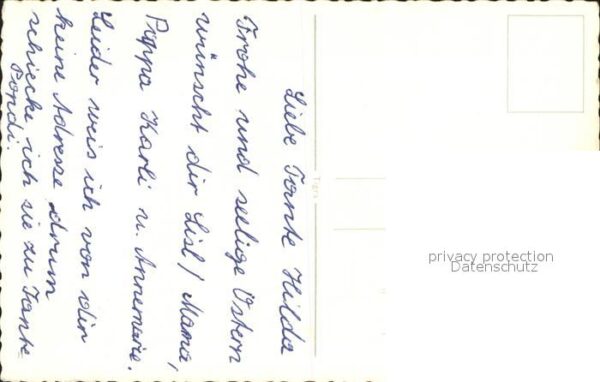 Liebe Tante Hilda
Frohe und seelige Ostern
wünscht dir Lisl / Mama,
Pappa Karli u. Annemarie.
Leider weis ich von dir
keine Adresse drum
schiecke ich sie zu Tante
Pondi.
privacy protection
Datenschutz